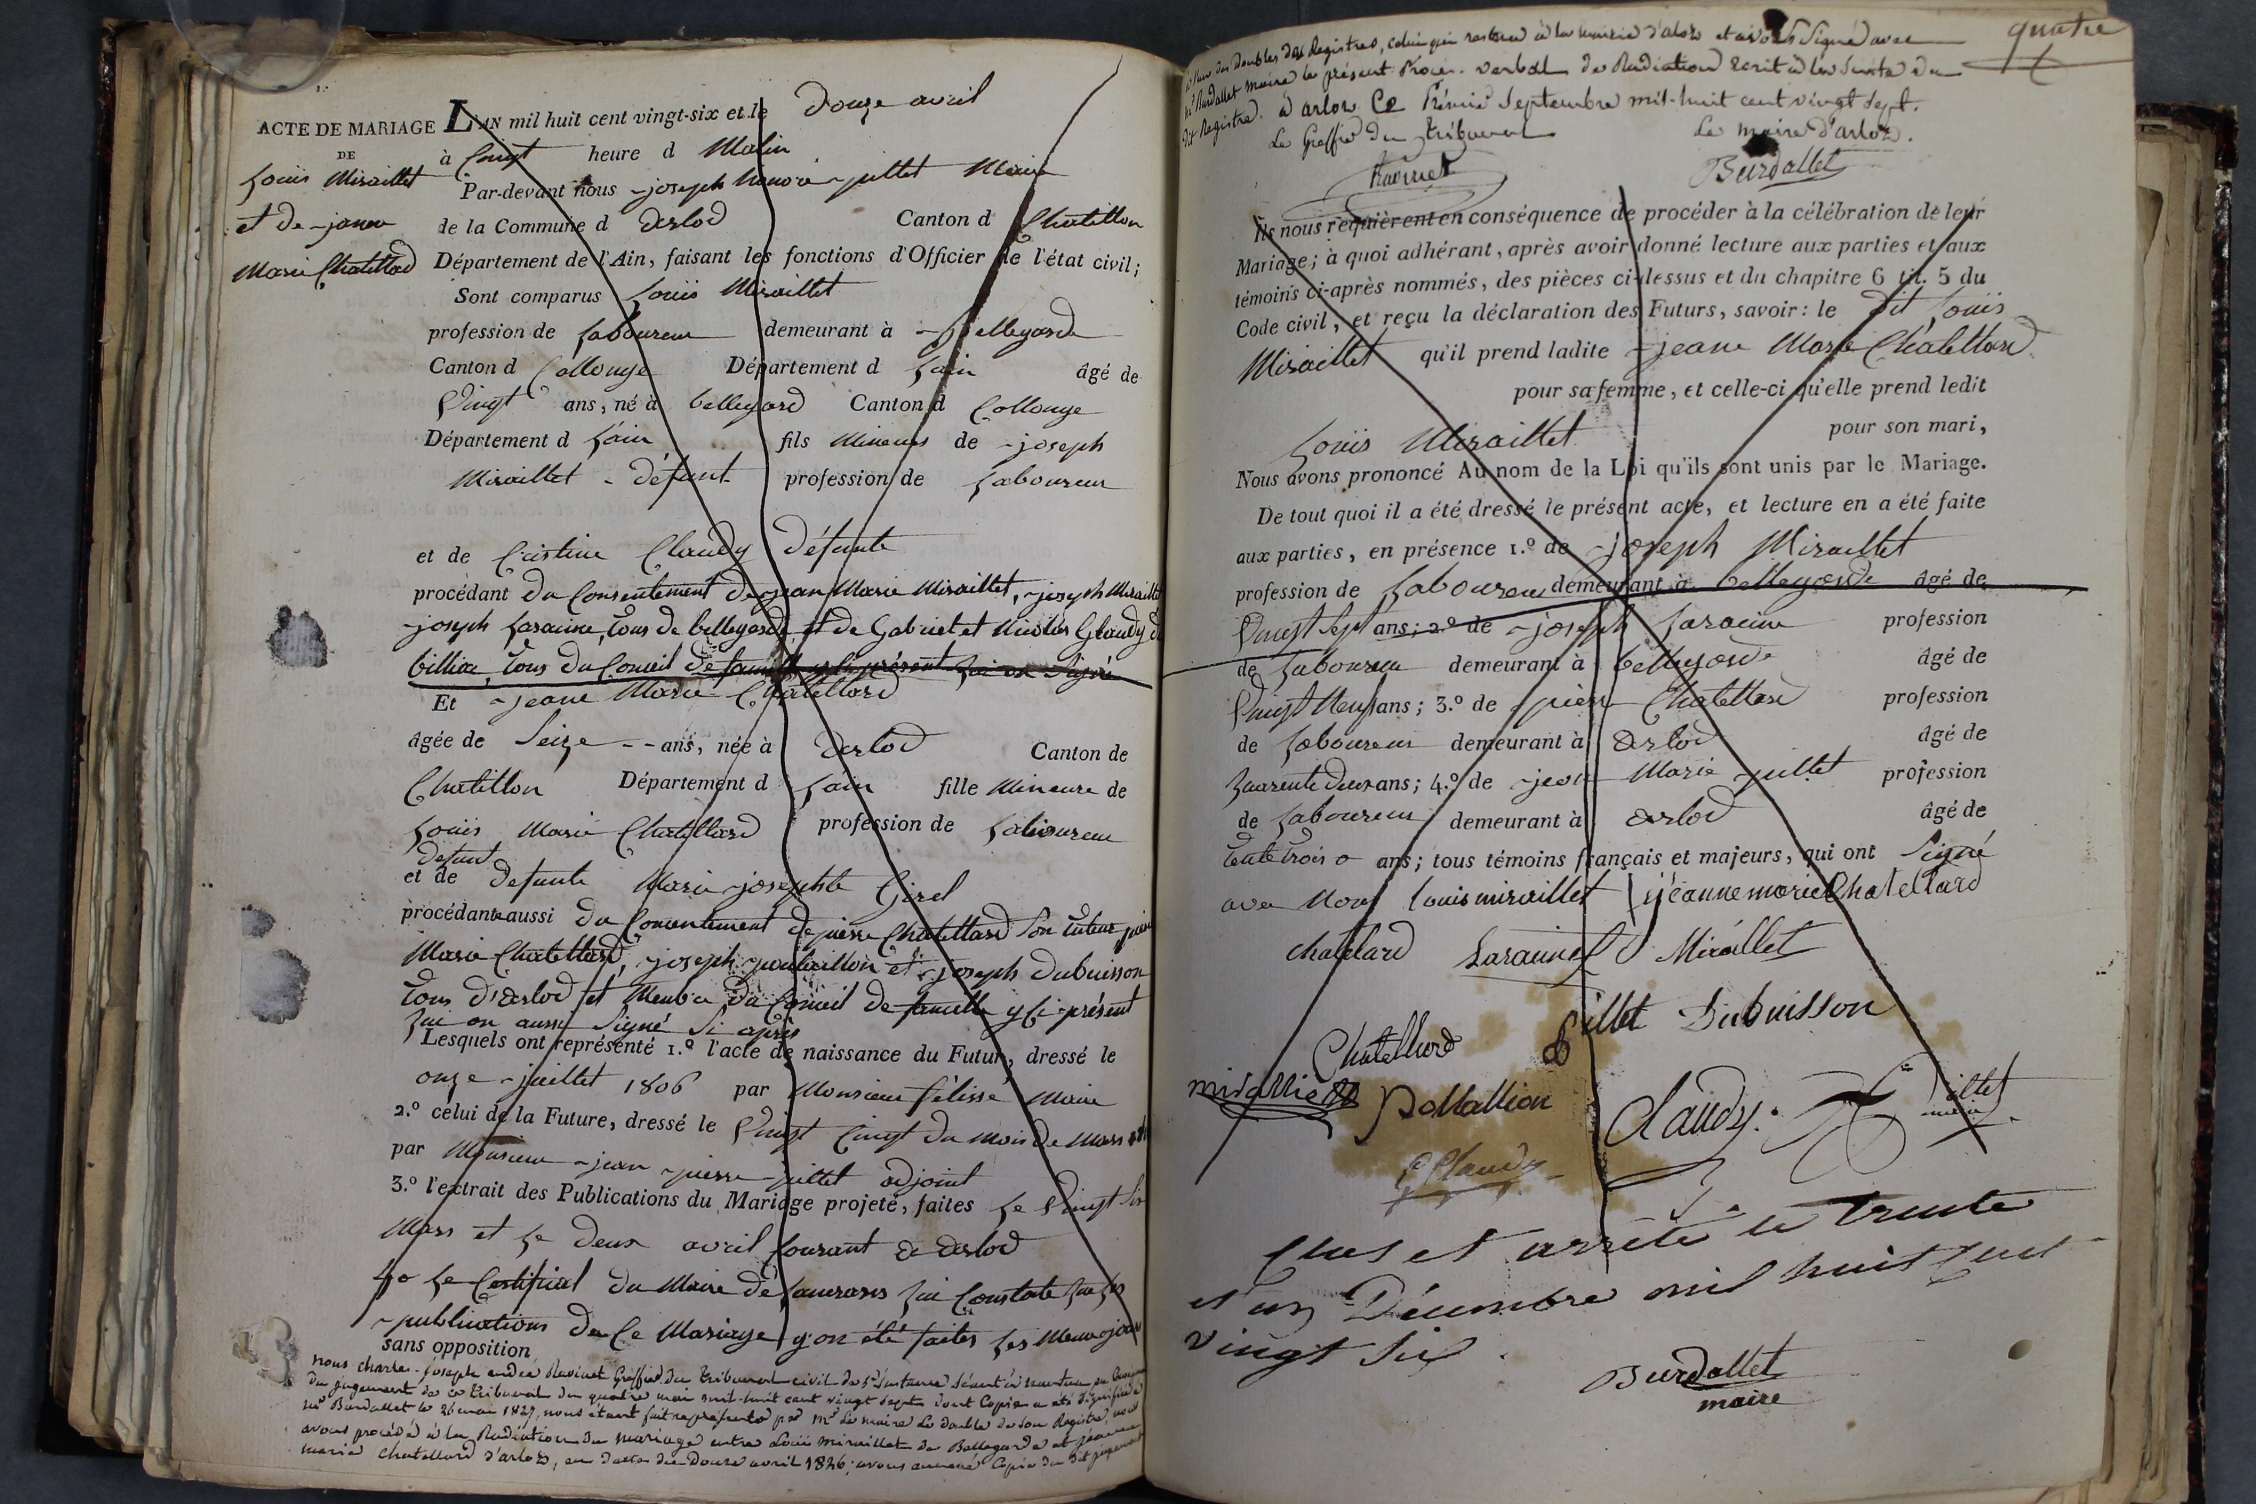 ACTE DE MARIAGE
DE
Louis Miraillet
et de jeanne
Marie Chatellard
L'AN mil huit cent vingt-six et le douze avril
à Cinq heure d Matin
Par-devant nous joseph honoré juillet Maire
de la Commune d Arlod Canton d Chatillon
Département de l'Ain, faisant les fonctions d'Officier de l'état civil;
Sont comparus Louis Miraillet
profession de Laboureur demeurant à Bellegarde
Canton d Collonge Département d Lain âgé de
Vingt ans, né à bellegard Canton d Collonge
Département d Lain fils Mineur de joseph
Miraillet défunt profession de Laboureur
et de Cristine Claudy défunte
procédant du Consentement de jean Marie Miraillet, joseph Miraillet
joseph Laracine, tous de bellegarde, et de Gabriel et Nicolas Glaudy de
billiat, tous du Conseil de famille y présent qui on signé
Et jeane Marie Chatellard
âgée de Seize ans, née à Arlod Canton de
Chatillon Département d Lain fille Mineure de
Louis Marie Chatellard profession de Laboureur
défunt
et de defunte Marie josephte Girel
procédante aussi du Consentement de pierre Chatellard Son tuteur
Marie Chatellard, joseph poulaillon et joseph dubuisson
tous d'Arlod et Membre du Conseil de famille y Ci présent
qui on aussi Signé Si après
Lesquels ont représenté 1.º l'acte de naissance du Futur, dressé le
onze juillet 1806 par Monsieur félissé Maire
2.º celui de la Future, dressé le Vingt Cinq du mois de Mars
par Monsieur jean pierre juillet adjoint
3.º l'extrait des Publications du Mariage projeté, faites Le Vingt Six
Mars et Le Deux avril Courant à Arlod
4º Le Certificat du Maire de qui Constate que les
publications de Ce Mariage y on été faites Les Meme jour
sans opposition
nous charles joseph andré Ravinet Greffier du tribunal civil de 1re instance séant à nantua en
du jugement de ce tribunal du quatre mai mil-huit cent vingt sept dont Copie a été signifiée à
mr Burdallet le 26 mai 1827, nous étant fait représenter par mr Le maire Le double de son Registre, nous
avons procédé à la Radiation du mariage entre Louis Miraillet de Bellegarde et jeanne
marie Chatellard d'arloz, en date du Douze avril 1826; avons annexé Copie du dit jugement
quatre
à l'un des doubles des Registres, celui qui restera à la mairie d'arloz et avons signé avec
mr Burdallet maire le présent Procès-verbal de Radiation écrit à la suite du
dit Registre. à arloz Ce Premier Septembre mil-huit cent vingt sept.
Le Greffier du tribunal Le maire d'arloz.
Ravinet Burdallet
Ils nous requièrent en conséquence de procéder à la célébration de leur
Mariage; à quoi adhérant, après avoir donné lecture aux parties et aux
témoins ci-après nommés, des pièces ci-dessus et du chapitre 6 tit. 5 du
Code civil, et reçu la déclaration des Futurs, savoir: le dit Louis
Miraillet qu'il prend ladite jeane Marie Chatellard
pour sa femme, et celle-ci qu'elle prend ledit
Louis Miraillet pour son mari,
Nous avons prononcé Au nom de la Loi qu'ils sont unis par le Mariage.
De tout quoi il a été dressé le présent acte, et lecture en a été faite
aux parties, en présence 1.º de joseph Miraillet
profession de Laboureur demeurant à bellegarde âgé de
Vingt Sept ans; 2.º de joseph Laracine profession
de Laboureur demeurant à bellegarde âgé de
Vingt Neuf ans; 3.º de pierre Chatellard profession
de Laboureur demeurant à Arlod âgé de
quarente deux ans; 4.º de jean Marie juillet profession
de Laboureur demeurant à Arlod âgé de
trente trois ans; tous témoins français et majeurs, qui ont Signé
avec Nous louis miraillet jéanne marie Chatellard
chatelard Laracine Mirallet
Chatellard Dubuisson
Pollallion Claudy
Claudy
Clos et arrêté le trente
et un Décembre mil huit cent
vingt Six.
Burdallet
maire